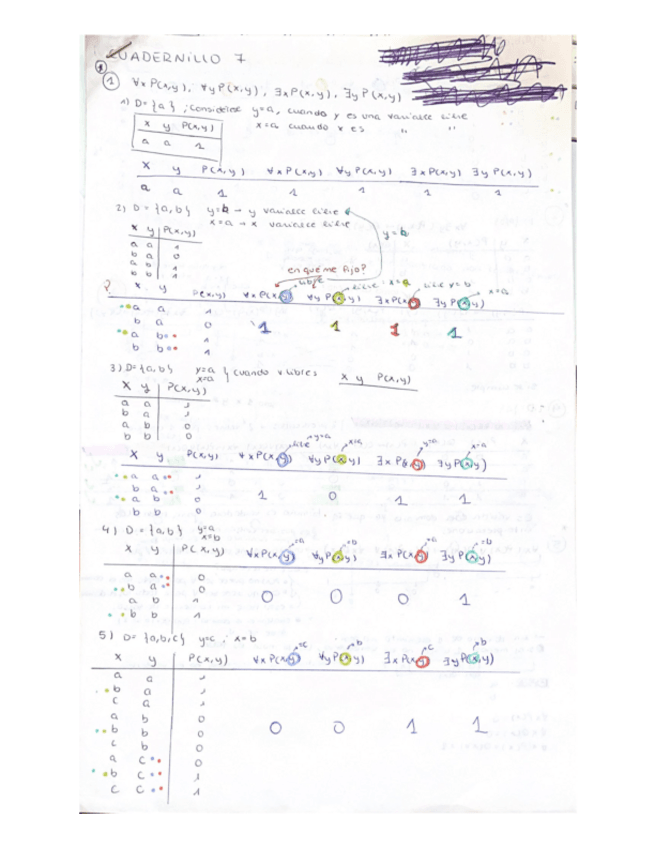 CUADERNILLO 7
① ∀xP(x,y), ∀yP(x,y), ∃xP(x,y), ∃yP(x,y)
1) D={a} ; considerar y=a, cuando y es una variable libre
x=a cuando x es " "
x y P(x,y)
a a 1
x y P(x,y) ∀xP(x,y) ∀yP(x,y) ∃xP(x,y) ∃yP(x,y)
a a 1 1 1 1 1
2) D={a,b} y=b → y variable libre
x=a → x variable libre
y=b
x y P(x,y)
a a 1
b a 0
a b 1
b b 1
en qué me fijo?
libre libre x=a libre y=b x=a
x y P(x,y) ∀xP(x,y) ∀yP(x,y) ∃xP(x,y) ∃yP(x,y)
a a 1
b a 0 1 1 1 1
a b 1
b b 1
3) D={a,b} y=a
x=a } cuando x libres x y P(x,y)
x y P(x,y)
a a 1
b a 1
a b 0
b b 0
libre y=a x=a y=a x=a
x y P(x,y) ∀xP(x,y) ∀yP(x,y) ∃xP(x,y) ∃yP(x,y)
a a 1
b a 1 1 0 1 1
a b 0
b b 0
4) D={a,b} y=a
x=b
=a =b =a =b
x y P(x,y) ∀xP(x,y) ∀yP(x,y) ∃xP(x,y) ∃yP(x,y)
a a 0
b a 0 0 0 0 1
a b 1
b b 1
5) D={a,b,c} y=c ; x=b
=c b c b
x y P(x,y) ∀xP(x,y) ∀yP(x,y) ∃xP(x,y) ∃yP(x,y)
a a 1
b a 1
c a 1
a b 0
b b 0 0 0 1 1
c b 0
a c 0
b c 1
c c 1